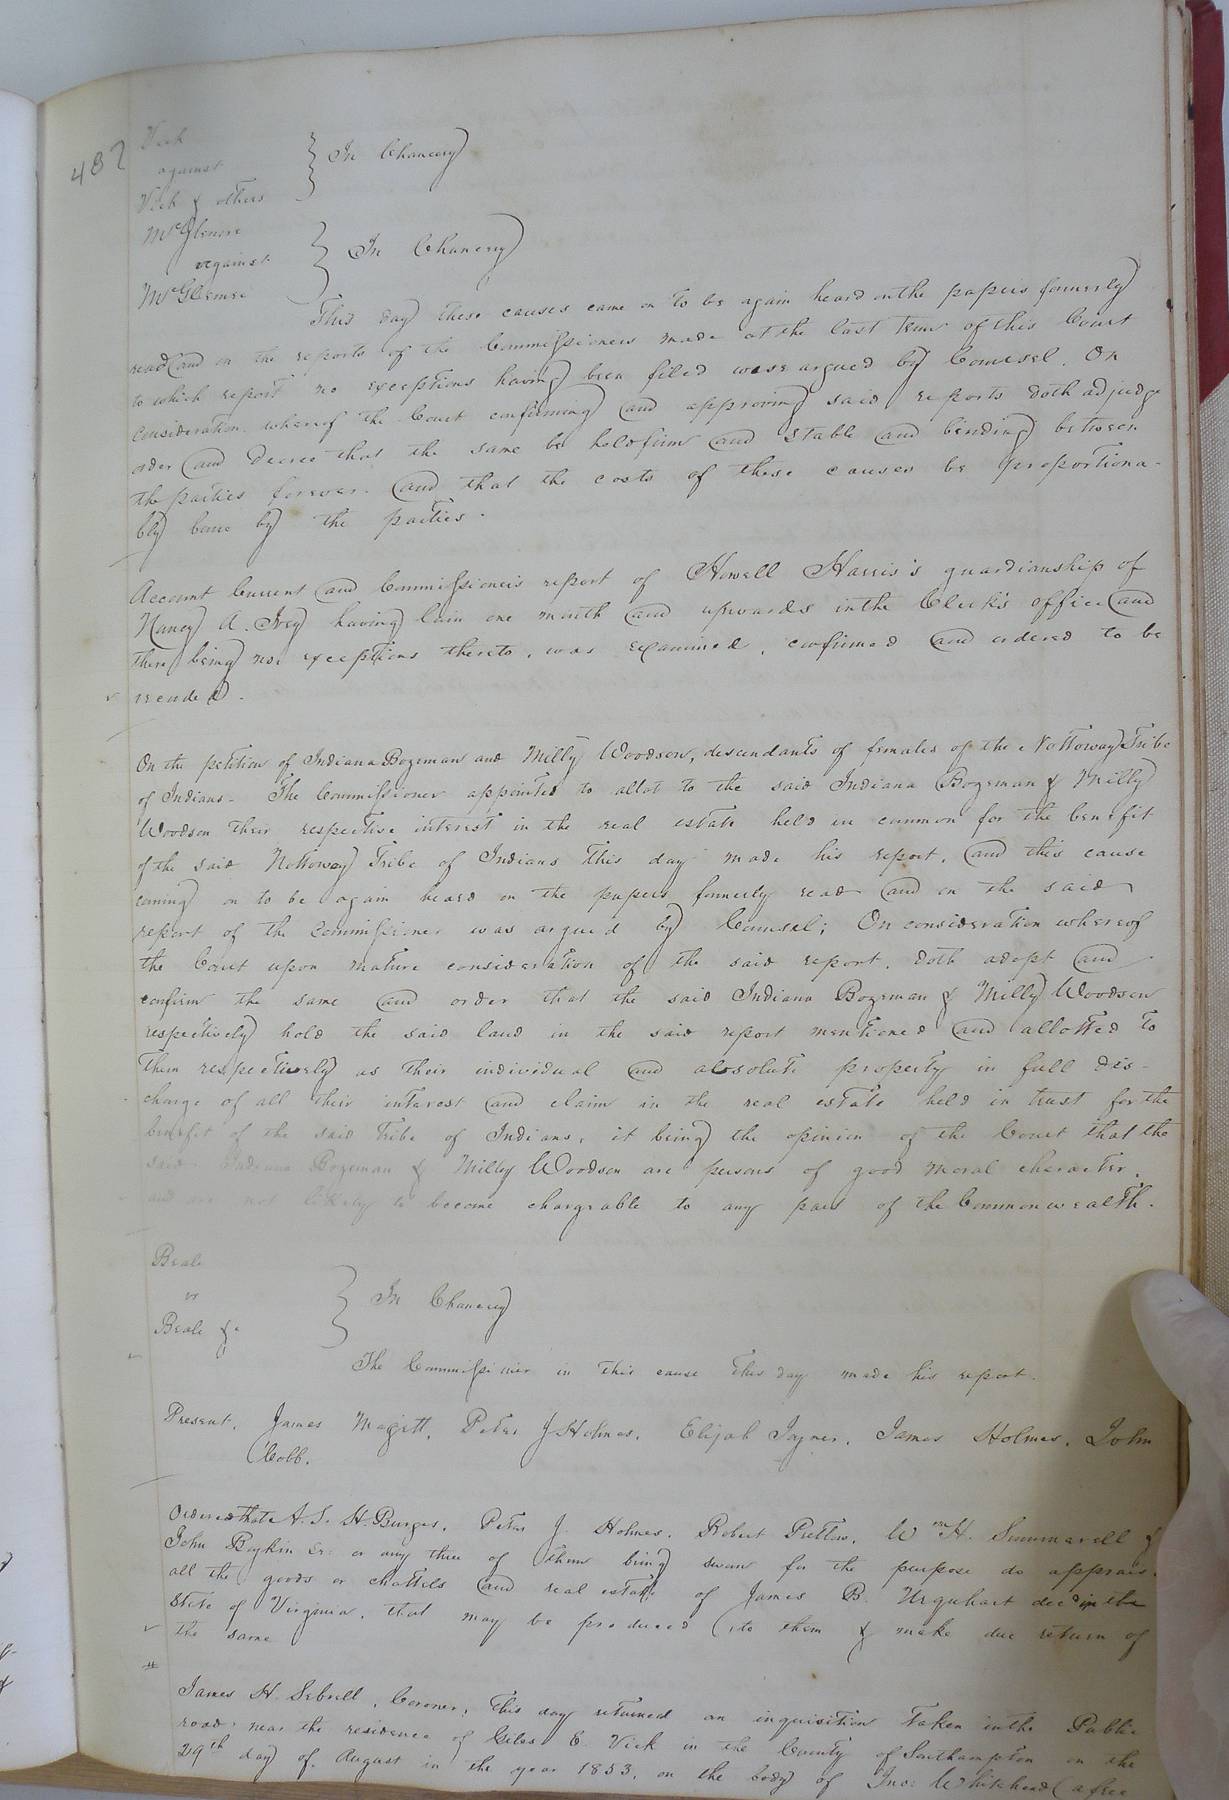 487
Vick
against
Vick & others
} In Chancery
McGlemre
against
McGlemre
} In Chancery
This day these causes came on to be again heard on the papers formerly
read and on the reports of the Commissioners made at the last term of this Court
to which report no exceptions having been filed was argued by Counsel. On
consideration whereof the Court confirming and approving said reports doth adjudge
order and decree that the same be hold firm and stable and binding between
the parties forever. and that the costs of these causes be proportiona-
bly borne by the parties.
Account Current and Commissioner's report of Howell Harris's guardianship of
Nancy A. Ivey having lain one month and upwards in the Clerk's office and
there being no exceptions thereto, was examined, confirmed and ordered to be
recorded.
On the petition of Indiana Bozeman and Milly Woodson, descendants of females of the Nottoway Tribe
of Indians - The Commissioner appointed to allot to the said Indiana Bozeman & Milly
Woodson their respective interest in the real estate held in common for the benefit
of the said Nottoway Tribe of Indians this day made his report, and this cause
coming on to be again heard on the papers formerly read and on the said
report of the Commissioner was argued by Counsel; On consideration whereof
the Court upon mature consideration of the said report, doth adopt and
confirm the same and order that the said Indiana Bozeman & Milly Woodson
respectively hold the said land in the said report mentioned and allotted to
them respectively as their individual and absolute property in full dis-
charge of all their interest and claim in the real estate held in trust for the
benefit of the said Tribe of Indians, it being the opinion of the Court that the
said Indiana Bozeman & Milly Woodson are persons of good moral character,
and are not likely to become chargeable to any part of the Commonwealth.
Beale
vs
Beale &c
} In Chancery
The Commissioner in this cause this day made his report.
Present, James Magett, Peter J Holmes, Elijah Joyner, James Holmes, John
Cobb.
Ordered that A. S. H. Burges, Peter J. Holmes, Robert Pretlow, Wm H. Summerell &
John Boykin Sr. or any three of them being sworn for the purpose do appraise
all the goods or chattels and real estate of James B. Urquhart decd in the
State of Virginia, that may be produced to them & make due return of
the same
James H. Sebrell, Coroner, this day returned an inquisition taken in the Public
road near the residence of Giles E. Vick in the County of Southampton on the
29th day of August in the year 1853, on the body of Jno: Whitehead (a free